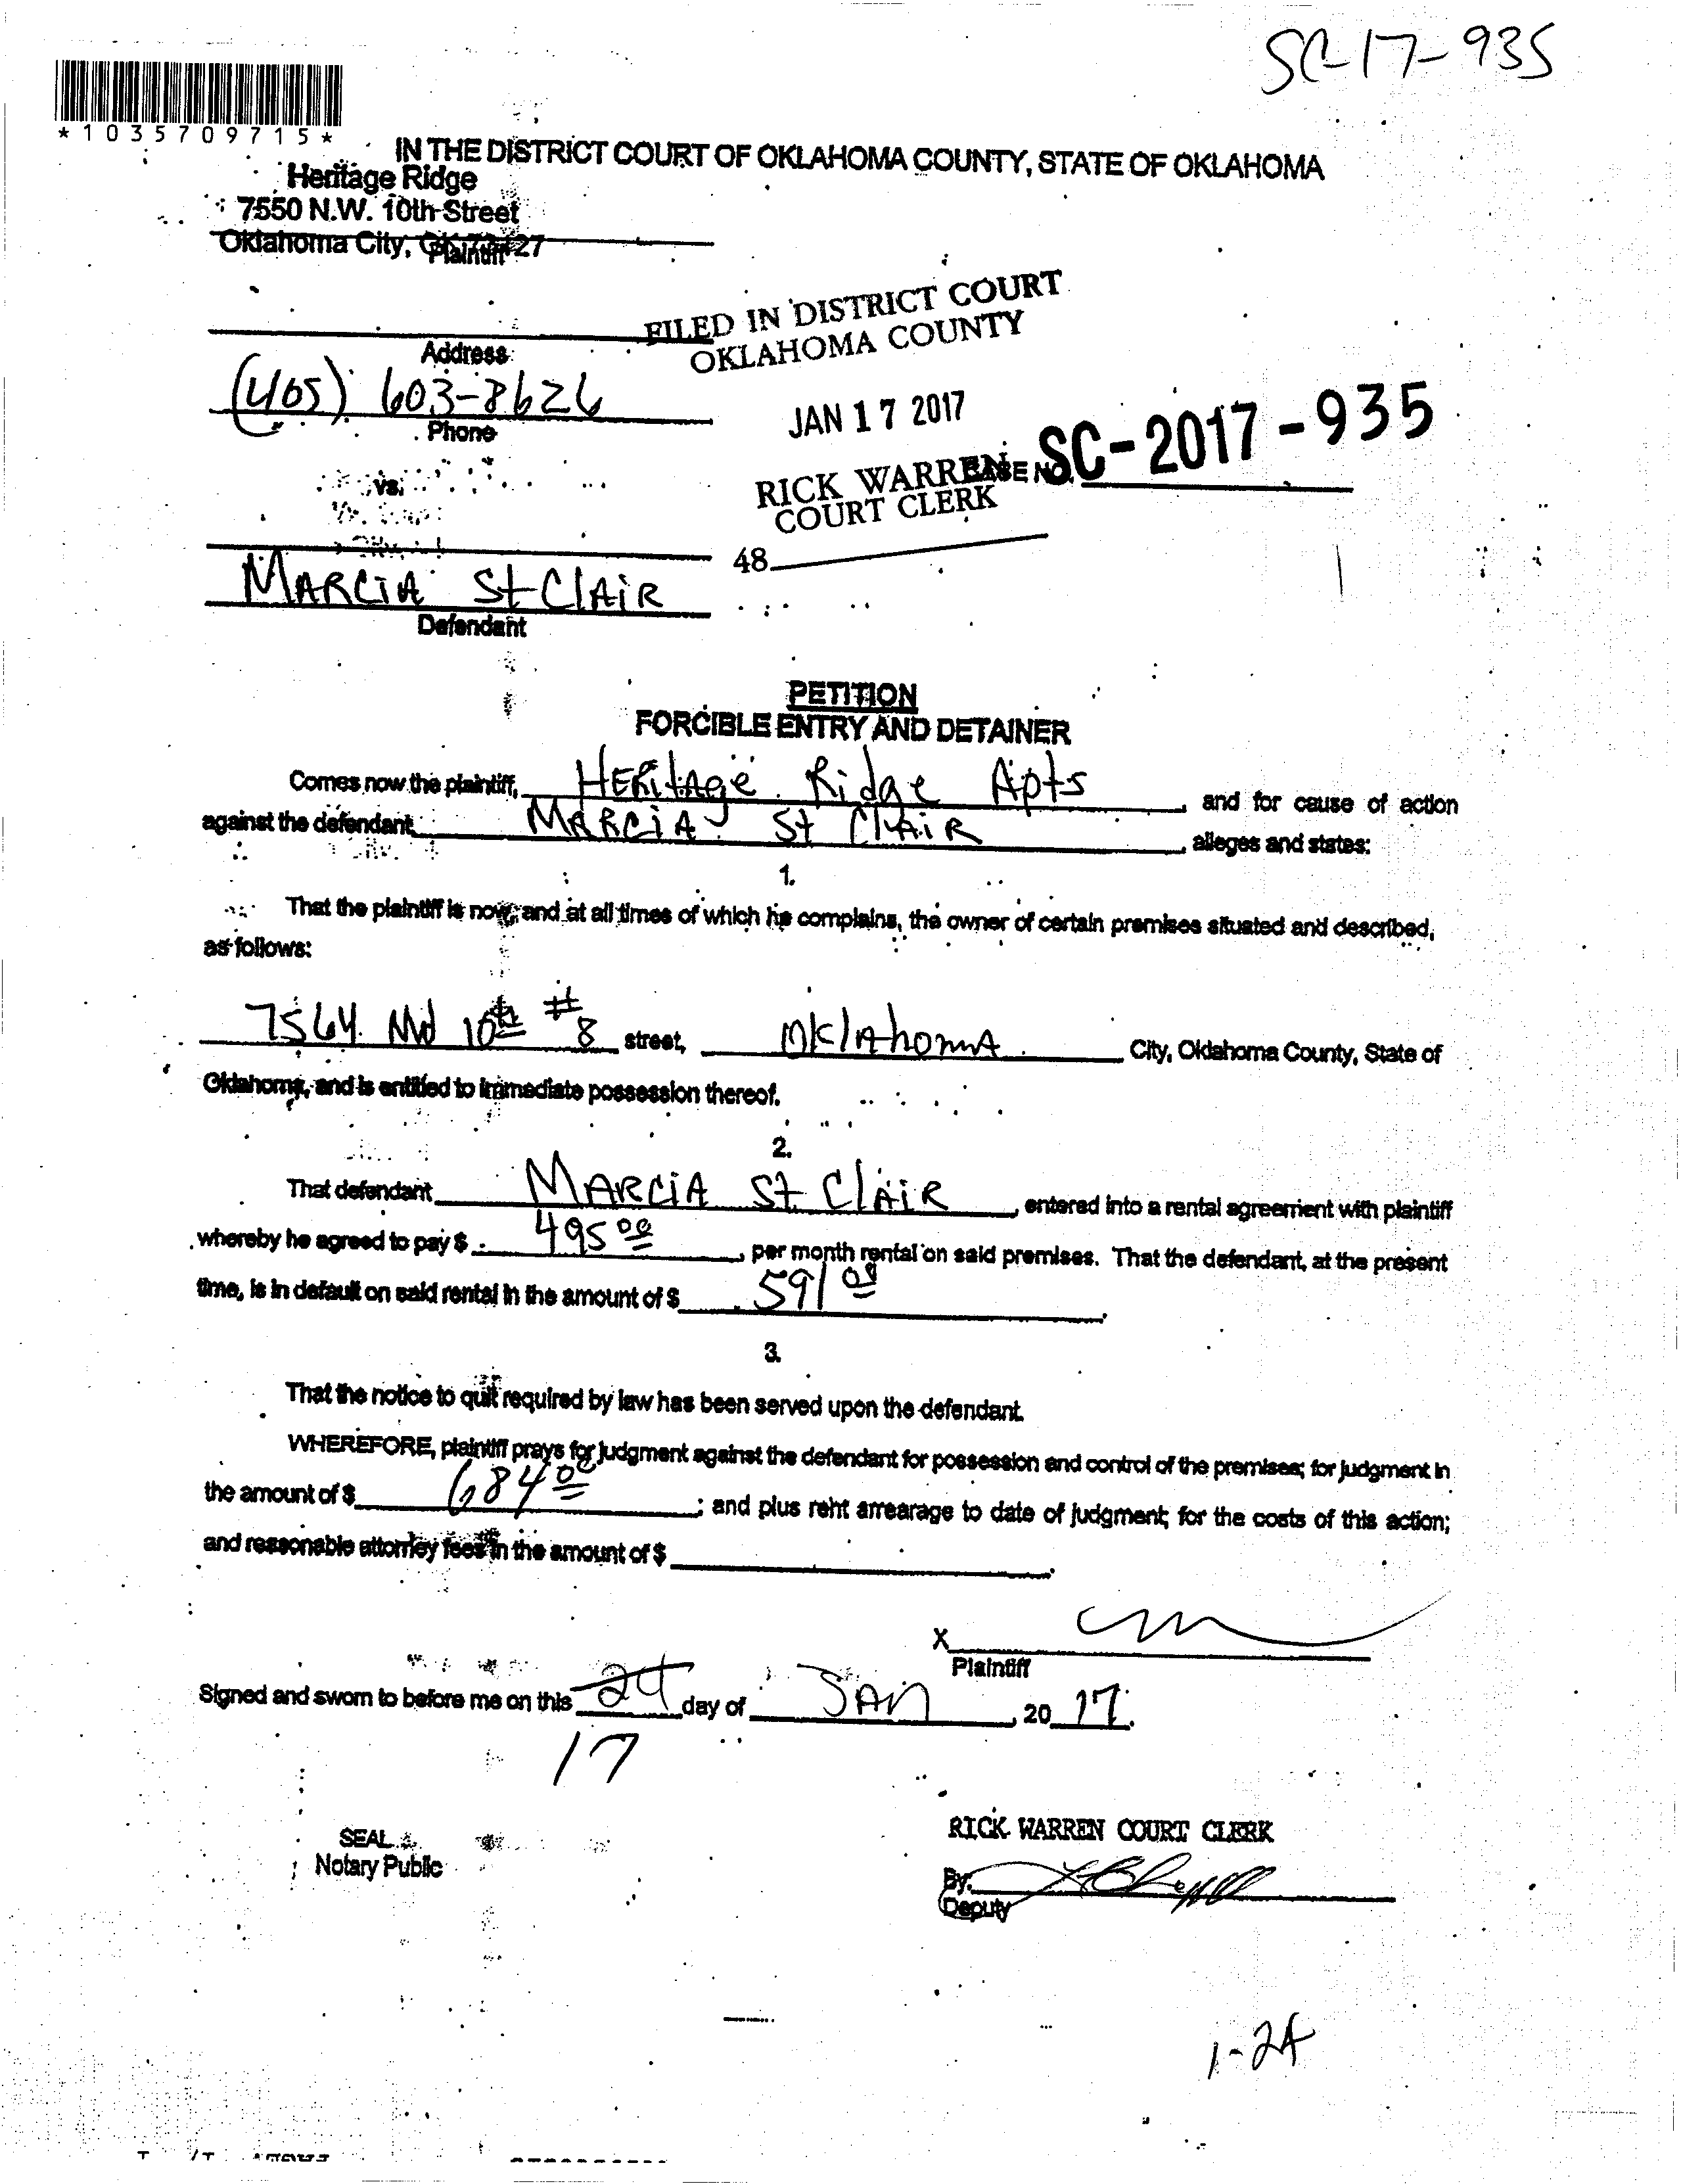 SC-17-935
*1035709715*
IN THE DISTRICT COURT OF OKLAHOMA COUNTY, STATE OF OKLAHOMA
Heritage Ridge
7550 N.W. 10th Street
Oklahoma City,
Plaintiff
FILED IN DISTRICT COURT
OKLAHOMA COUNTY
Address
(405) 603-8626
Phone
JAN 17 2017
CASE NO. SC-2017-935
RICK WARREN
COURT CLERK
vs.
48
MARCIA St ClAiR
Defendant
PETITION
FORCIBLE ENTRY AND DETAINER
Comes now the plaintiff, HERitAge Ridge Apts and for cause of action
against the defendant MARCiA St ClAiR, alleges and states:
1.
That the plaintiff is now, and at all times of which he complains, the owner of certain premises situated and described,
as follows:
7564 NW 10th #8 street, OklAhomA City, Oklahoma County, State of
Oklahoma, and is entitled to immediate possession thereof.
2.
That defendant MARCiA St. ClAiR, entered into a rental agreement with plaintiff
whereby he agreed to pay $ 495 00, per month rental on said premises. That the defendant, at the present
time, is in default on said rental in the amount of $ 591 00.
3.
That the notice to quit required by law has been served upon the defendant.
WHEREFORE, plaintiff prays for judgment against the defendant for possession and control of the premises; for judgment in
the amount of $ 684 00; and plus rent arrearage to date of judgment; for the costs of this action;
and reasonable attorney fees in the amount of $
X
Plaintiff
Signed and sworn to before me on this 24 day of JAN, 20 17.
17
SEAL
Notary Public
RICK WARREN COURT CLERK
By
Deputy
1-24